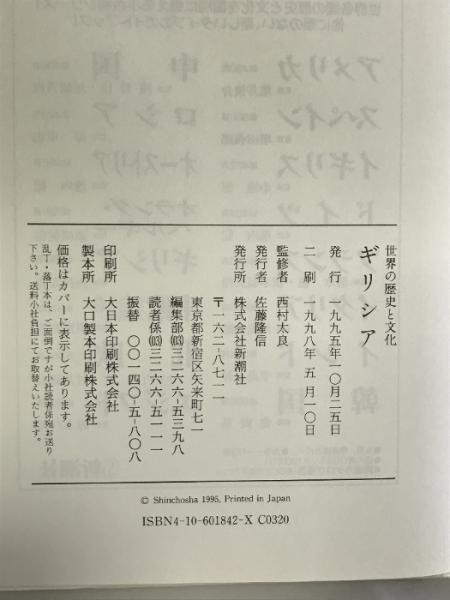 世界の歴史と文化
ギリシア
発行 一九九五年一〇月二五日
二刷 一九九八年 五月一〇日
監修者 西村太良
発行者 佐藤隆信
発行所 株式会社新潮社
〒一六二-八七一一
東京都新宿区矢来町七一
編集部(03)三二六六-五三九八
読者係(03)三二六六-五一一一
振替 〇〇一四〇-五-八〇八
印刷所 大日本印刷株式会社
製本所 大口製本印刷株式会社
価格はカバーに表示してあります。
乱丁・落丁本は、ご面倒ですが小社読者係宛お送り
下さい。送料小社負担にてお取替えいたします。
© Shinchosha 1995, Printed in Japan
ISBN4-10-601842-X C0320